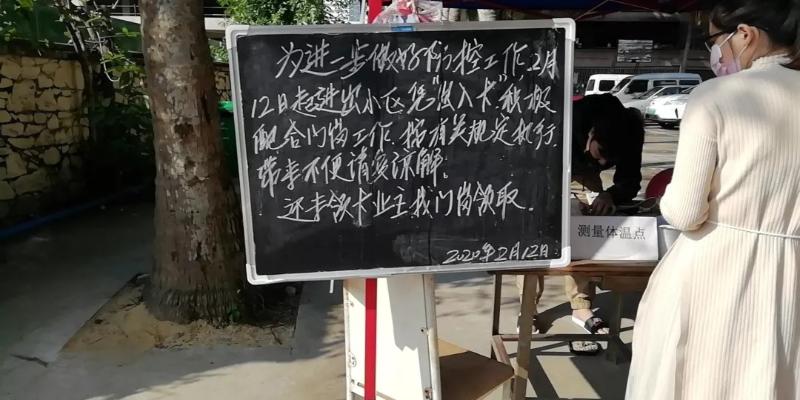 为进一步做好防控工作,2月
12日起进出小区凭“出入卡”积极
配合门岗工作,按有关规定执行,
带来不便请多谅解。
还未领卡业主找门岗领取.
2020年2月12日
测量体温点